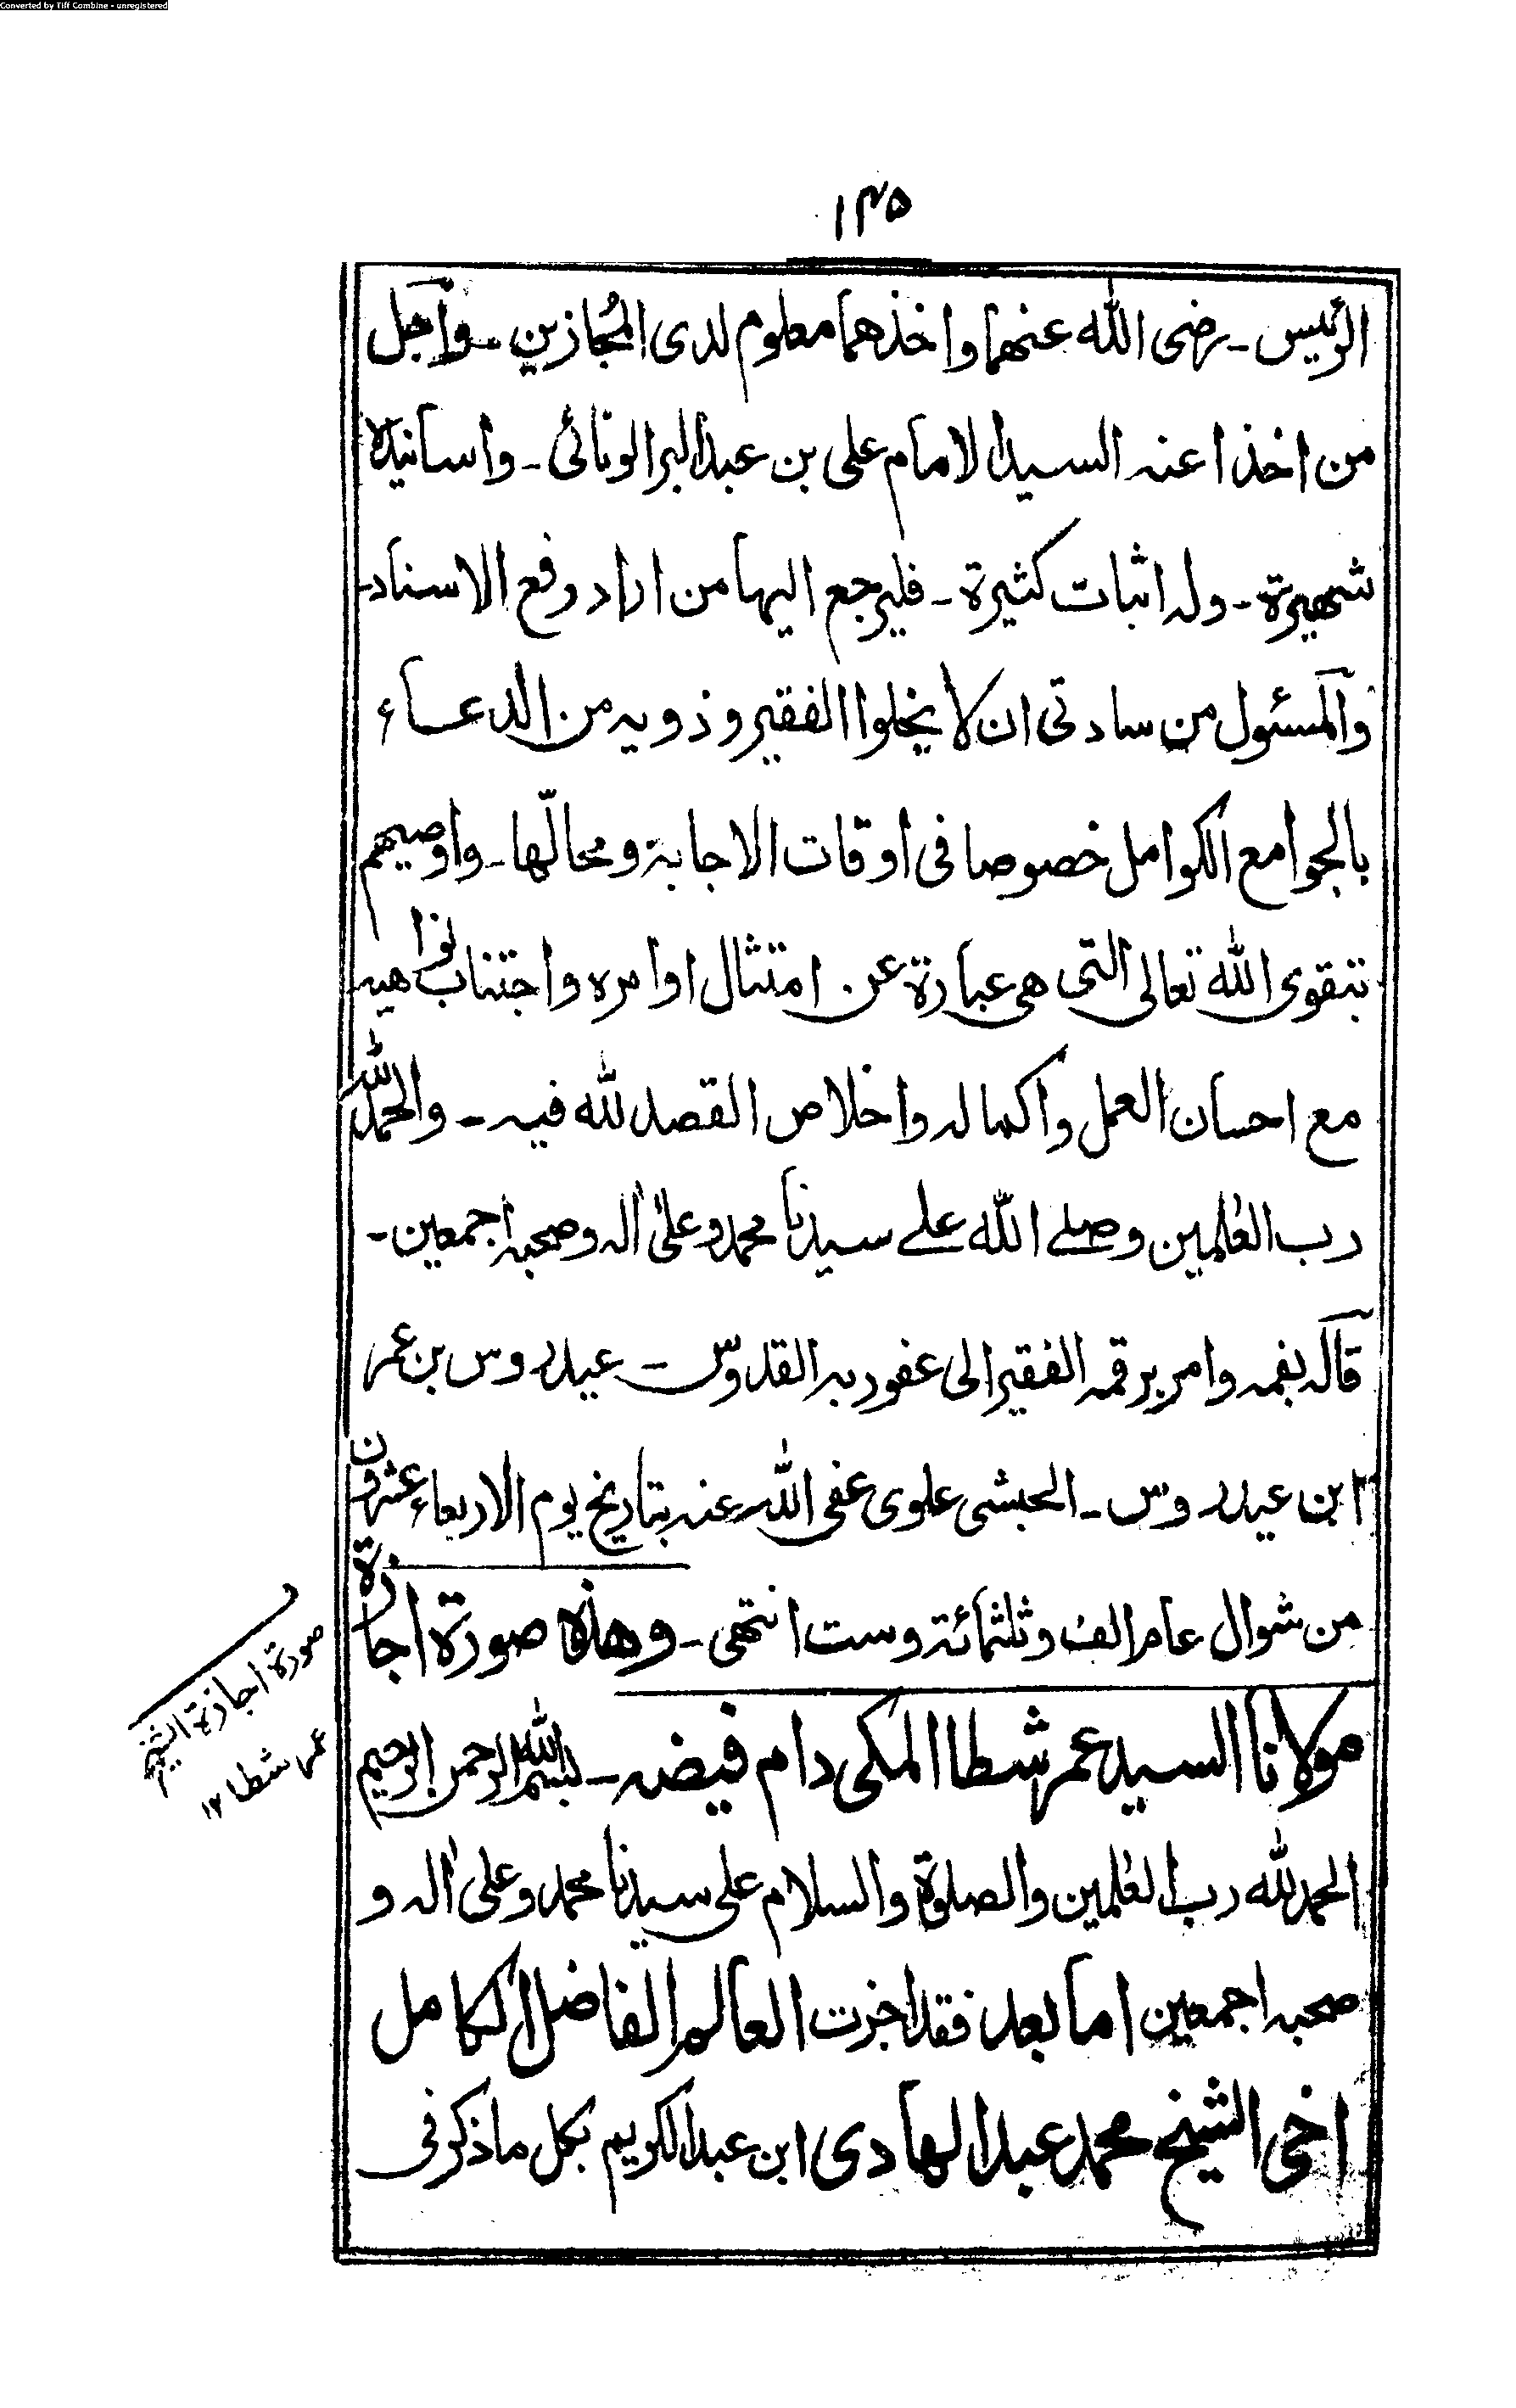 Converted by Tiff Combine - unregistered
١٣٥
الرئيس ـ رضى الله عنهما واخذهما معلوم لدى المُجازين ـ وآجل
من اخذا عنه السيد الامام على بن عبد البر الونائى ـ واسانيده
شهيرة ـ وله اثبات كثيرة ـ فليرجع اليها من اراد رفع الاسناد ـ
وآلمسئول من سادتى ان لا يخلوا الفقير وذويه من الدعاء
بالجوامع الكوامل خصوصا فى اوقات الاجابة ومحالّها ـ واوصيهم
بتقوى الله تعالى التى هى عبارة عن امتثال اوامره واجتناب نواهيه
مع احسان العمل واكماله واخلاص القصد لله فيه ـ والحمد لله
رب العٰلمين وصلے الله علے سيدنا محمد وعلىٰ اٰله وصحبه اجمعين ـ
قآله بفمه وامر برقمه الفقير الى عفو ربه القدوس ـ عيدروس بن عمر
ابن عيدروس ـ الحبشى علوى عفى الله عنه بتاريخ يوم الاربعاء عشرون
من شوال عام الف وثلثمائة وست انتهى ـ وهذه صورة اجازة
مولانا السيد عمر شطا المكى دام فيضه ـ بسم الله الرحمن الرحيم
الحمد لله رب العٰلمين والصلوة والسلام على سيدنا محمد وعلى اٰله و
صحبه اجمعين اما بعد فقد اجزت العالم الفاضل الكامل
اخى الشيخ محمد عبد الهادى ابن عبد الكريم بكل ما ذكر فى
صورة اجازة الشيخ
عمر شطا ١٢